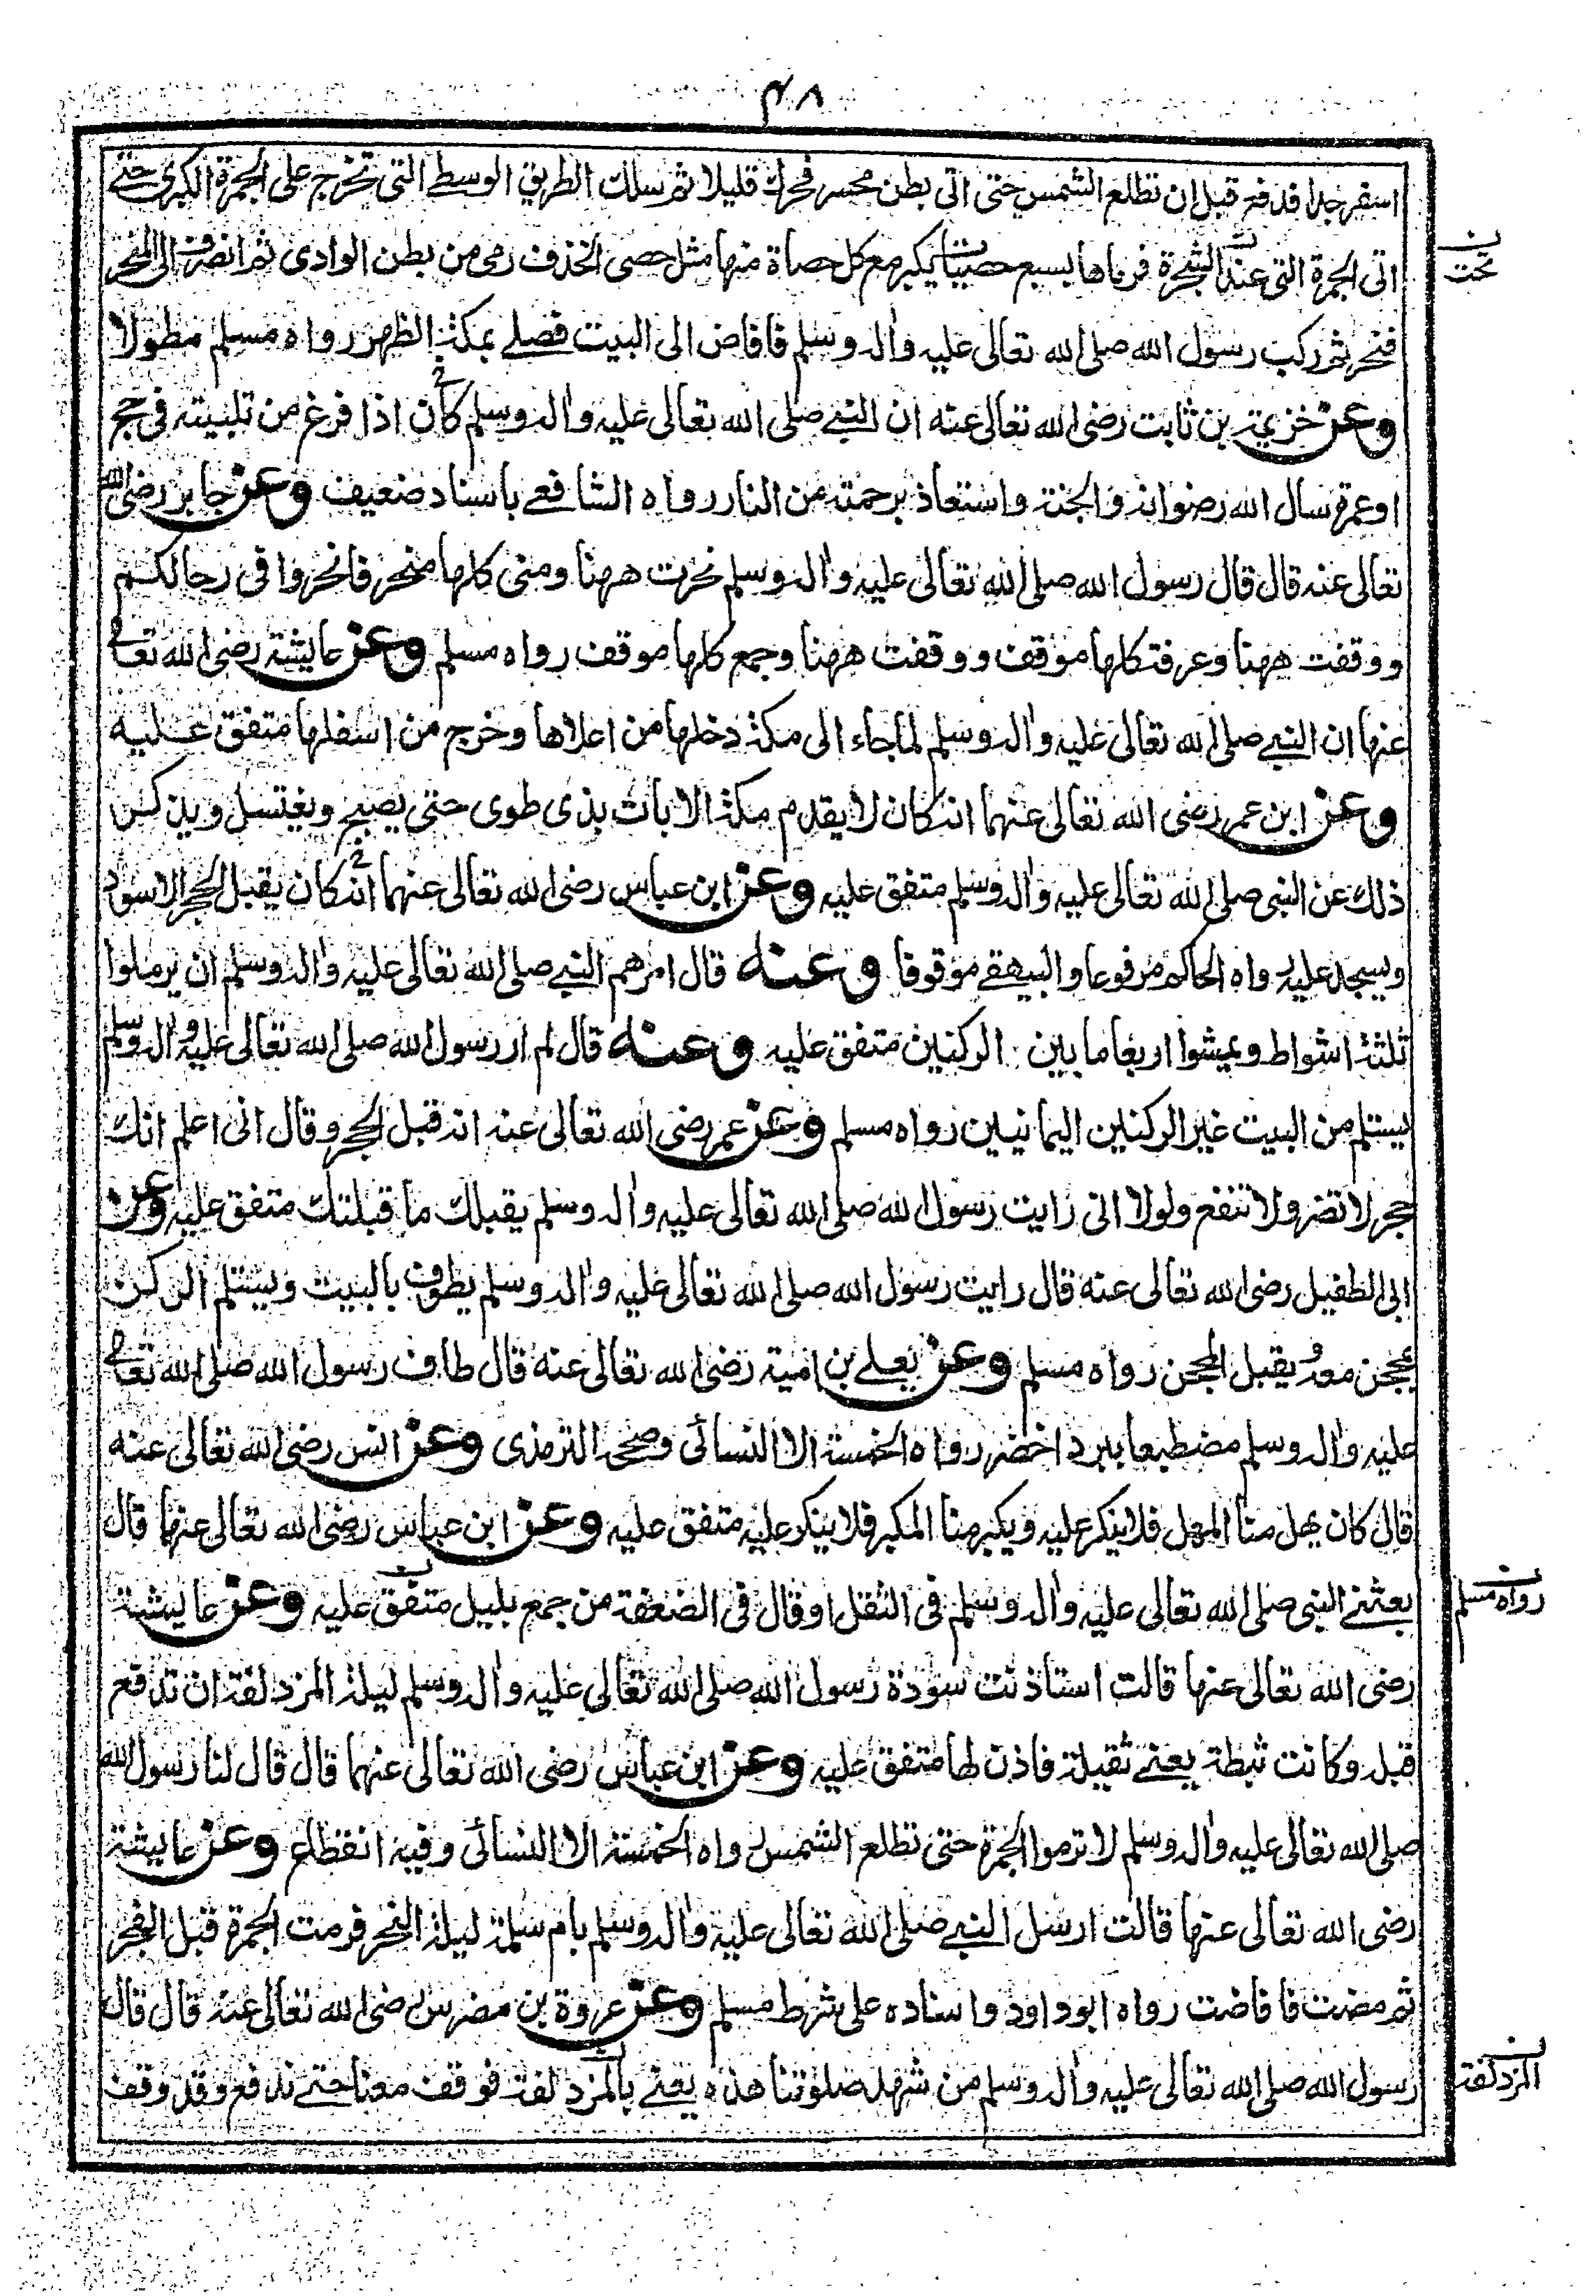 ٣٨
اسفر جدا فدفع قبل ان تطلع الشمس حتى اتى بطن محسر فحرك قليلا ثم سلك الطريق الوسطى التى تخرج على الجمرة الكبرى حتى
اتى الجمرة التى عند الشجرة فرماها بسبع حصيات يكبر مع كل حصاة منها مثل حصى الخذف رمى من بطن الوادى ثم انصرف الى المنحر
تحت
فنحر ثم ركب رسول الله صلى الله تعالى عليه واله وسلم فافاض الى البيت فصلى بمكة الظهر رواه مسلم مطولا
وعن خزيمة بن ثابت رضى الله تعالى عنه ان النبى صلى الله تعالى عليه واله وسلم كان اذا فرغ من تلبيته فى حج
او عمرة سال الله رضوانه والجنة واستعاذ برحمته من النار رواه الشافعى باسناد ضعيف وعن جابر رضى الله
تعالى عنه قال قال رسول الله صلى الله تعالى عليه واله وسلم نحرت ههنا ومنى كلها منحر فانحروا فى رحالكم
ووقفت ههنا وعرفة كلها موقف ووقفت ههنا وجمع كلها موقف رواه مسلم وعن عايشة رضى الله تعالى
عنها ان النبى صلى الله تعالى عليه واله وسلم لما جاء الى مكة دخلها من اعلاها وخرج من اسفلها متفق عليه
وعن ابن عمر رضى الله تعالى عنهما انه كان لا يقدم مكة الا بات بذى طوى حتى يصبح ويغتسل ويذكر
ذلك عن النبى صلى الله تعالى عليه واله وسلم متفق عليه وعن ابن عباس رضى الله تعالى عنهما انه كان يقبل الحجر الاسود
ويسجد عليه رواه الحاكم مرفوعا والبيهقى موقوفا وعنه قال امرهم النبى صلى الله تعالى عليه واله وسلم ان يرملوا
ثلثة اشواط ويمشوا اربعا ما بين الركنين متفق عليه وعنه قال لم ار رسول الله صلى الله تعالى عليه واله وسلم
يستلم من البيت غير الركنين اليمانيين رواه مسلم وعن عمر رضى الله تعالى عنه انه قبل الحجر وقال انى اعلم انك
حجر لا تضر ولا تنفع ولولا انى رايت رسول الله صلى الله تعالى عليه واله وسلم يقبلك ما قبلتك متفق عليه وعن
ابى الطفيل رضى الله تعالى عنه قال رايت رسول الله صلى الله تعالى عليه واله وسلم يطوف بالبيت ويستلم الركن
بمحجن معه ويقبل المحجن رواه مسلم وعن يعلى بن امية رضى الله تعالى عنه قال طاف رسول الله صلى الله تعالى
عليه واله وسلم مضطبعا ببرد اخضر رواه الخمسة الا النسائى وصححه الترمذى وعن انس رضى الله تعالى عنه
قال كان يهل منا المهل فلا ينكر عليه ويكبر منا المكبر فلا ينكر عليه متفق عليه وعن ابن عباس رضى الله تعالى عنهما قال
بعثنى النبى صلى الله تعالى عليه واله وسلم فى الثقل او قال فى الضعفة من جمع بليل متفق عليه وعن عايشة
رواه مسلم
رضى الله تعالى عنها قالت استاذنت سودة رسول الله صلى الله تعالى عليه واله وسلم ليلة المزدلفة ان تدفع
قبله وكانت ثبطة يعنى ثقيلة فاذن لها متفق عليه وعن ابن عباس رضى الله تعالى عنهما قال قال لنا رسول الله
صلى الله تعالى عليه واله وسلم لا ترموا الجمرة حتى تطلع الشمس رواه الخمسة الا النسائى وفيه انقطاع وعن عايشة
رضى الله تعالى عنها قالت ارسل النبى صلى الله تعالى عليه واله وسلم بام سلمة ليلة النحر فرمت الجمرة قبل الفجر
ثم مضت فافاضت رواه ابو داود واسناده على شرط مسلم وعن عروة بن مضرس رضى الله تعالى عنه قال قال
رسول الله صلى الله تعالى عليه واله وسلم من شهد صلوتنا هذه يعنى بالمزدلفة فوقف معنا حتى ندفع وقد وقف
المزدلفة